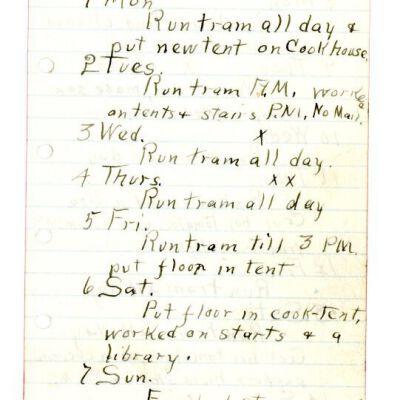 1 Mon
Run tram all day &
put new tent on Cook house.
2 Tues.
Run tram A.M, worked
on tents & stairs P.M, No Mail.
3 Wed. x
Run tram all day.
4 Thurs. x x
Run tram all day
5 Fri.
Run tram till 3 PM.
put floor in tent
6 Sat.
Put floor in cook-tent,
worked on starts & a
library.
7 Sun.